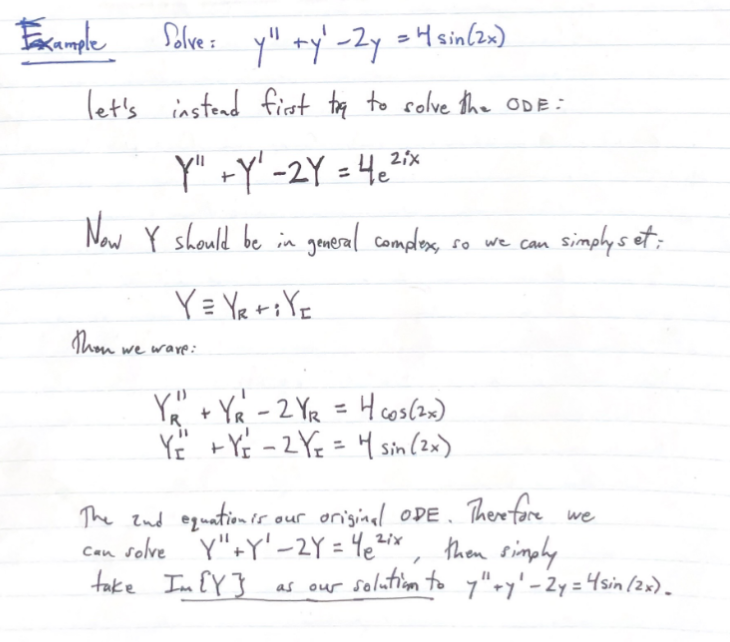 Example Solve: y'' + y' - 2y = 4 sin(2x)
let's instead first try to solve the ODE:
Y'' + Y' - 2Y = 4e^{2ix}
Now Y should be in general complex, so we can simply set:
Y ≡ Y_R + iY_I
Then we ware:
Y_R'' + Y_R' - 2Y_R = 4 cos(2x)
Y_I'' + Y_I' - 2Y_I = 4 sin(2x)
The 2nd equation is our original ODE. Therefore we
can solve Y'' + Y' - 2Y = 4e^{2ix}, then simply
take Im{Y} as our solution to y'' + y' - 2y = 4 sin(2x).